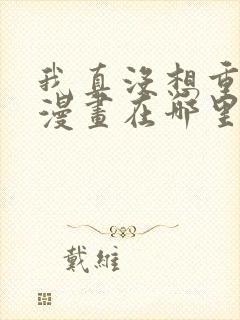 我真沒想重
漫畫在哪里
戴維